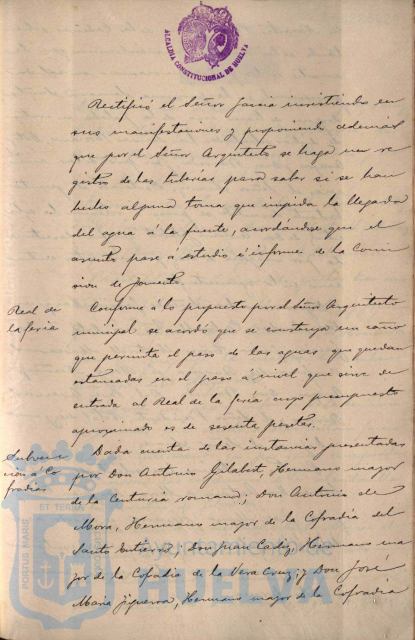 ALCALDIA CONSTITUCIONAL DE HUELVA
Rectificó el Señor Garcia insistiendo en
sus manifestaciones y proponiendo además
que por el Señor Arquitecto se haga un re
gistro de las tuberías para saber si se han
hecho alguna toma que impida la llegada
del agua á la fuente, acordándose que el
asunto pase a estudio é informe de la Comi
sion de Fomento.
Real de
la feria
Conforme á lo propuesto por el Señor Arquitecto
municipal se acordó que se construya un caño
que permita el paso de las aguas que quedan
estancadas en el paso á nivel que sirve de
entrada al Real de la feria cuyo presupuesto
aproximado es de sesenta pesetas.
Subven
cion á Co
fradias
Dada cuenta de las instancias presentadas
por Don Antonio Gilabert, Hermano mayor
de la Centuria romana; Don Antonio de
Mora, Hermano mayor de la Cofradia del
Santo Entierro; Don Juan Cadiz, Hermano ma
yor de la Cofradia de la Vera Cruz; y Don José
Maria Figueroa, Hermano mayor de la Cofradia
PORTUS MARIS ET TERRAE
HUELVA